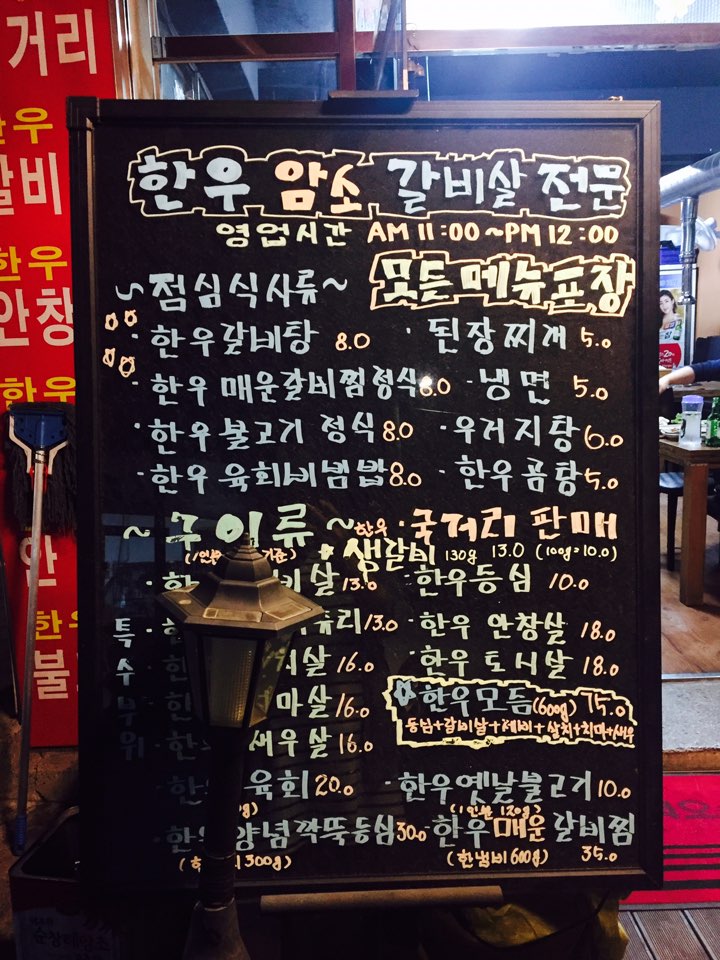 거리
한우
갈비
한우
안창
한우
안
한우
불
한우 암소 갈비살 전문
영업시간 AM 11:00~PM 12:00
모든메뉴포장
~점심식사류~
·한우갈비탕 8.0 ·된장찌개 5.0
·한우 매운갈비찜정식 8.0 ·냉면 5.0
·한우불고기 정식 8.0 ·우거지탕 6.0
·한우 육회비빔밥 8.0 ·한우곰탕 5.0
~구이류~ 한우·국거리 판매
(1인분 기준) 생갈비 130g 13.0 (100g=10.0)
비살 13.0 ·한우등심 10.0
특수부위
리 13.0 ·한우 안창살 18.0
살 16.0 ·한우 토시살 18.0
마살 16.0 한우모듬(600g) 75.0
등심+갈비살+제비+살치+치마+새우
새우살 16.0
육회 20.0 ·한우옛날불고기 10.0
(1인분 120g)
양념깍뚝등심 30.0 ·한우매운갈비찜
300g) (한냄비 600g) 35.0